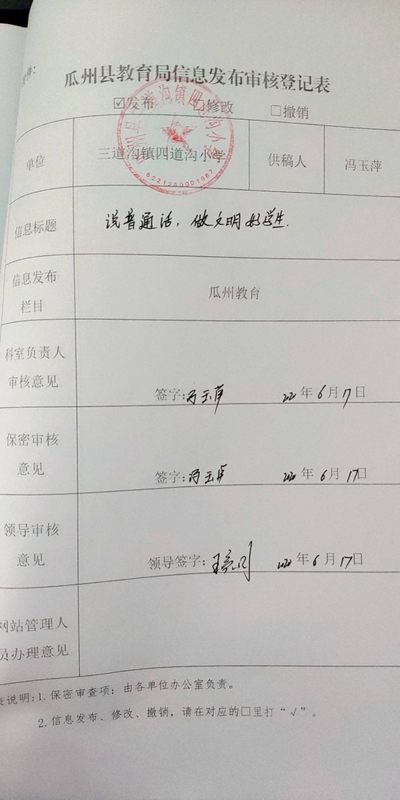 瓜州县教育局信息发布审核登记表
☑发布 □修改 □撤销
单位 三道沟镇四道沟小学 供稿人 冯玉萍
信息标题 说普通话，做文明好学生.
信息发布
栏目
瓜州教育
科室负责人
审核意见
签字: 年6月17日
保密审核
意见
签字: 年6月17日
领导审核
意见
领导签字: 年6月17日
网站管理人
员办理意见
表说明:1.保密审查项：由各单位办公室负责。
2.信息发布、修改、撤销，请在对应的□里打“√”。